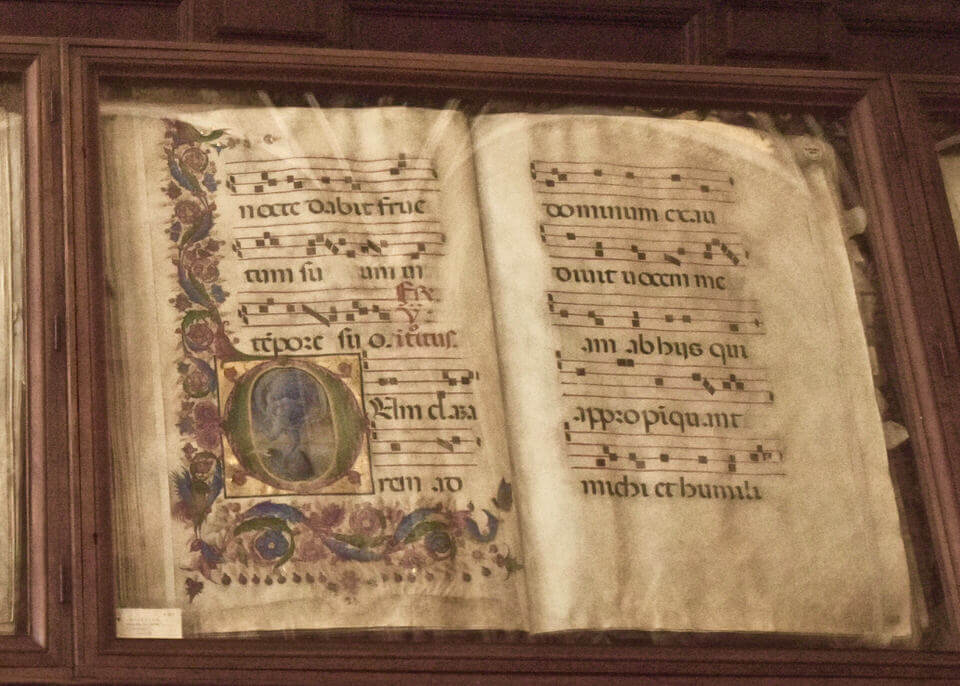 nocte dabit fruc
tum su um in
Fer.
V.
tēpore su o. itroitus.
OUm clama
rem ad
dominum exau
diuit uocem me
am ab hijs qui
appropīquant
michi et humilia